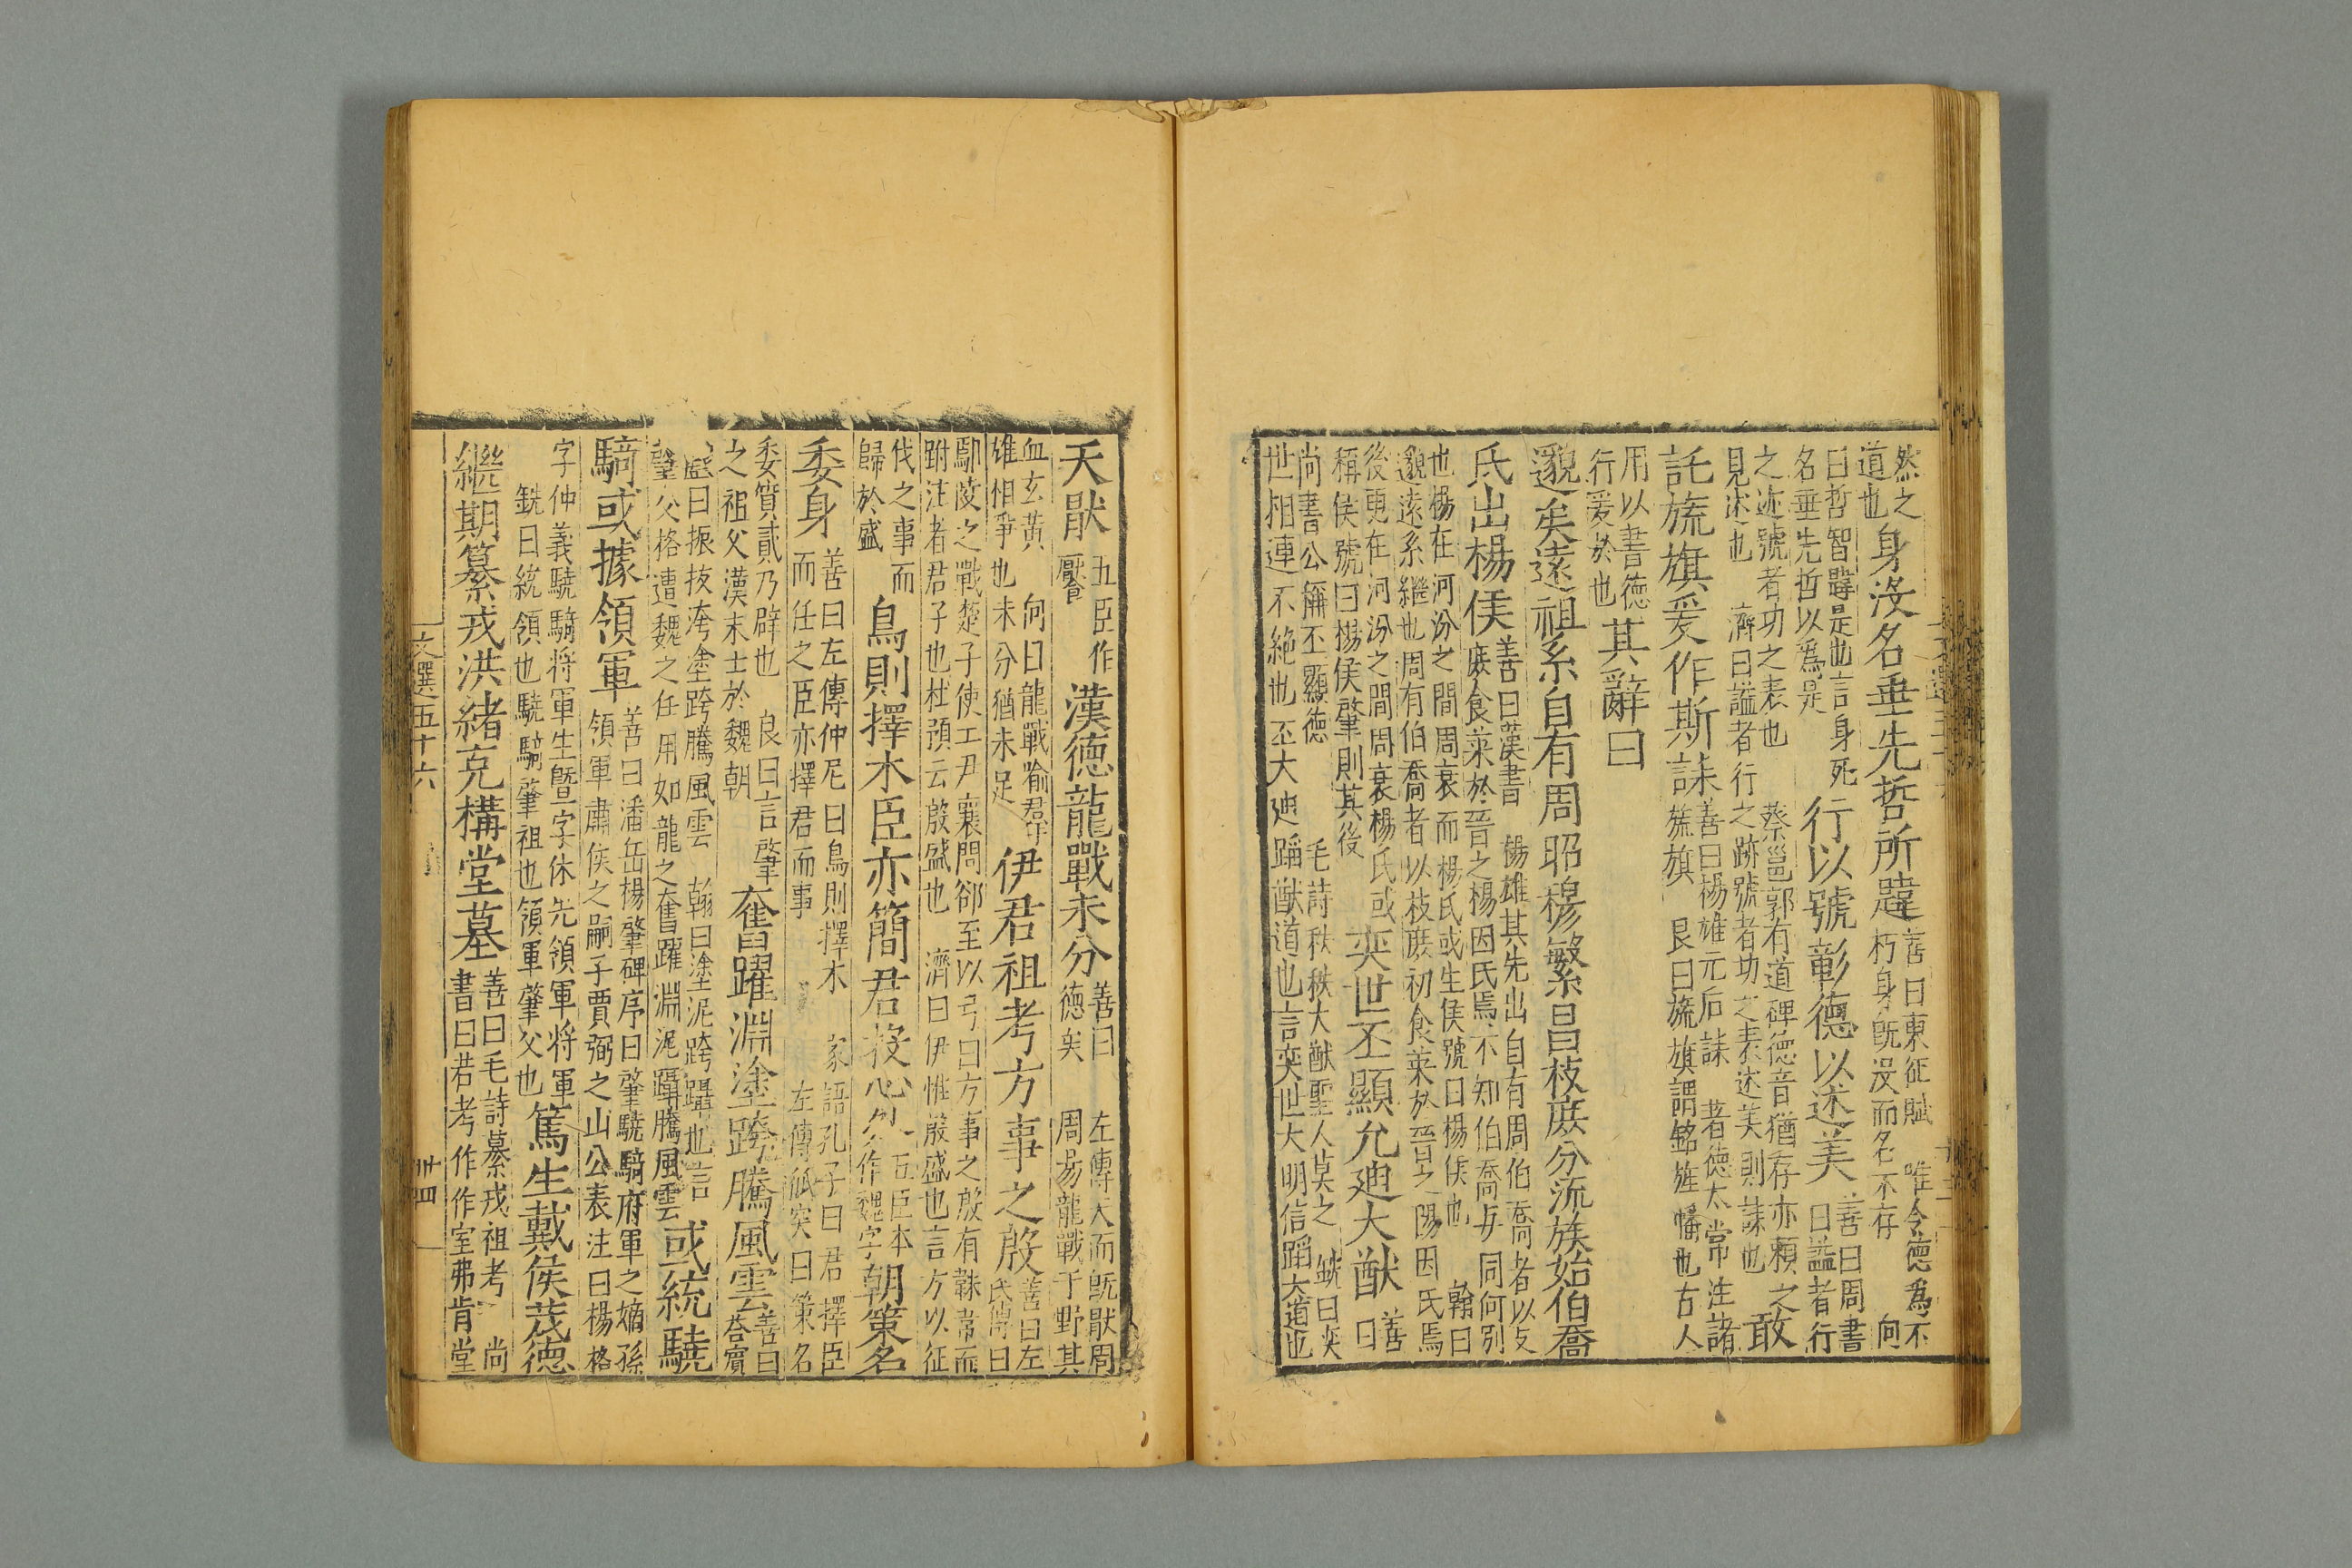 然之
道也
身沒名垂先哲所韙
善曰東征賦 唯令德爲不
朽身旣没而名不存 向
曰哲智韙是也言身死
名垂先哲以爲是
行以號彰德以述美
善曰周書
曰謚者行
之迹號者功之表也 蔡邕郭有道碑德音猶存亦賴之
見述也 濟曰謚者行之跡號者功之表述美則誄也
敢
託旒旗爰作斯誄
善曰楊雄元后誄 著德太常注諸
旒旗 良曰旒旗謂銘旌幡也古人
用以書德
行爰於也
其辭曰
邈矣遠祖系自有周昭穆繁昌枝庶分流族始伯喬
氏出楊侯
善曰漢書 楊雄其先出自有周伯喬者以支
庶食菜於晉之楊因氏焉不知伯喬与同何別
也楊在河汾之間周衰而楊氏或生侯號曰楊侯也 翰曰
邈遠系繼也周有伯喬者以枝庶初食菜於晉之陽因氏焉
後更在河汾之間周衰楊氏或
稱侯號曰楊侯肇則其後
奕世丕顯允迪大猷
善
曰
尚書公稱丕顯德 毛詩秩秩大猷聖人莫之 銑曰奕
世相連不絶也丕大迪蹈猷道也言奕世大明信蹈大道也
天猒
五臣作
厭
漢德龍戰未分
善曰 左傳天而旣猒周
德矣 周易龍戰于野其
血玄黃 向曰龍戰喻羣
雄相爭也未分猶未定
伊君祖考方事之殷
善曰左
氏傳曰
鄢陵之戰楚子使工尹襄問郤至以弓曰方事之殷有韎韋而
跗注者君子也杜預云殷盛也 濟曰伊惟殷盛也言方以征
伐之事而
歸於盛
鳥則擇木臣亦簡君投心
五臣本
作魏字
朝策名
委身
善曰左傳仲尼曰鳥則擇木 家語孔子曰君擇臣
而任之臣亦擇君而事 左傳狐突曰策名
委質貳乃辟也 良曰言肇
之祖父漢末士於魏朝
奮躍淵塗跨騰風雲
善曰
荅賓
戲曰振拔洿塗跨騰風雲 翰曰塗泥跨躡也言
肇父格遭魏之任用如龍之奮躍淵泥躡騰風雲
或統驍
騎或據領軍
善曰潘岳楊肇碑序曰肇驍騎府軍之嫡孫
領軍肅侯之嗣子賈弼之山公表注曰楊格
字仲義驍騎將軍生曁字休先領軍將軍
銑曰統領也驍騎肇祖也領軍肇父也
篤生戴侯茂德
繼期纂戎洪緒克構堂基
善曰毛詩纂戎祖考 尚
書曰若考作作室弗肯堂
文選五十六
卅四